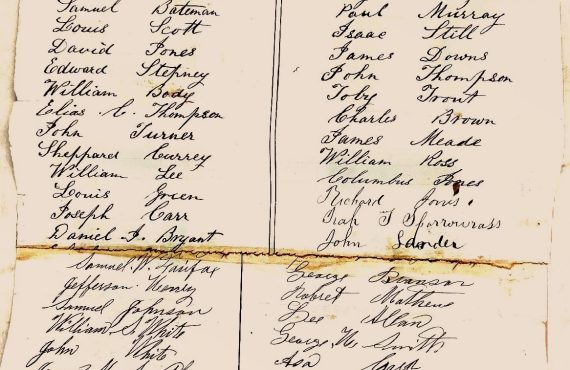 Samuel Bateman
Louis Scott
David Jones
Edward Stepney
William Body
Elias C. Thompson
John Turner
Sheppard Currey
William Lee
Louis Green
Joseph Carr
Daniel F. Bryant
Samuel W. Fairfax
Jefferson
Samuel Johnson
William S. White
John White
Paul Murray
Isaac Still
James Downs
John Thompson
Toby Trout
Charles Brown
James Meade
William Ross
Columbus Jones
Richard Jones
Isap T Sparrowrass
John Sander
George Branson
Robret Mathews
Lee Allan
George W. Smith
Asa